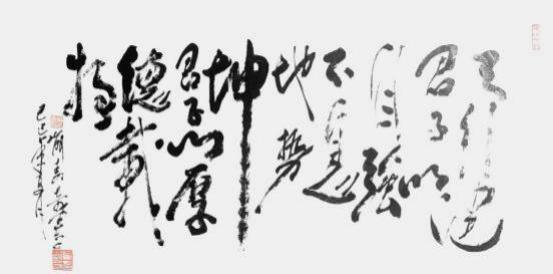 天行健
君子以
自強
不息
地勢
坤
君子以厚
德載
物